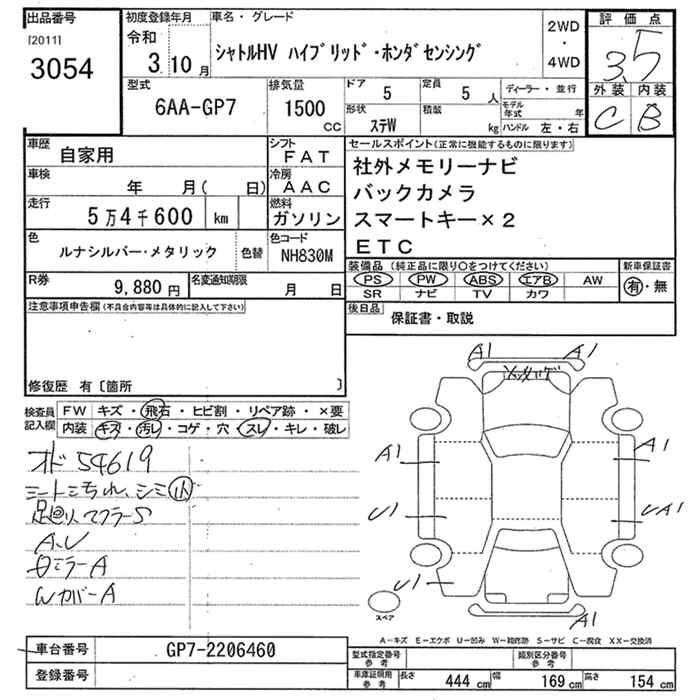 出品番号
[2011]
3054
初度登録年月
令和
3 10 月
車名・グレード
シャトルHV ハイブリッド・ホンダセンシング
2WD
・
4WD
評価点
3.5
外装 内装
C B
型式
6AA-GP7
排気量
1500
CC
ドア
5
定員
5 人
形状
ステW
積載
kg
ディーラー・並行
モデル年式 年
ハンドル 左・右
車歴
自家用
シフト
FAT
車検
年 月( 日)
冷房
AAC
走行
5万4千600 km
燃料
ガソリン
色
ルナシルバー・メタリック
色替
色コード
NH830M
R券
9,880 円
名変通知期限
月 日
セールスポイント(正常に機能するものに限ります)
社外メモリーナビ
バックカメラ
スマートキー×2
ETC
装備品(純正品に限り○をつけてください)
PS PW ABS エアB AW
SR ナビ TV カワ
新車保証書
有・無
後日品
保証書・取説
注意事項申告欄(不具合内容等は具体的に記入して下さい)
修復歴 有〔箇所 〕
検査員記入欄
FW キズ・飛石・ヒビ割・リペア跡・×要
内装 キズ・汚レ・コゲ・穴・スレ・キレ・破レ
オド 54619
シートヨゴレ、シミ小
足廻り、マフラーS
A、U
ミラーA
WカバーA
A1 A1
A1
A1
U1
UA1
U1
A1
スペア
A-キズ E-エクボ U-凹み W-補修跡 S-サビ C-腐食 XX-交換済
車台番号
GP7-2206460
登録番号
型式指定番号 参考
類別区分番号 参考
車庫証明用 参考
長さ 444 cm
幅 169 cm
高さ 154 cm